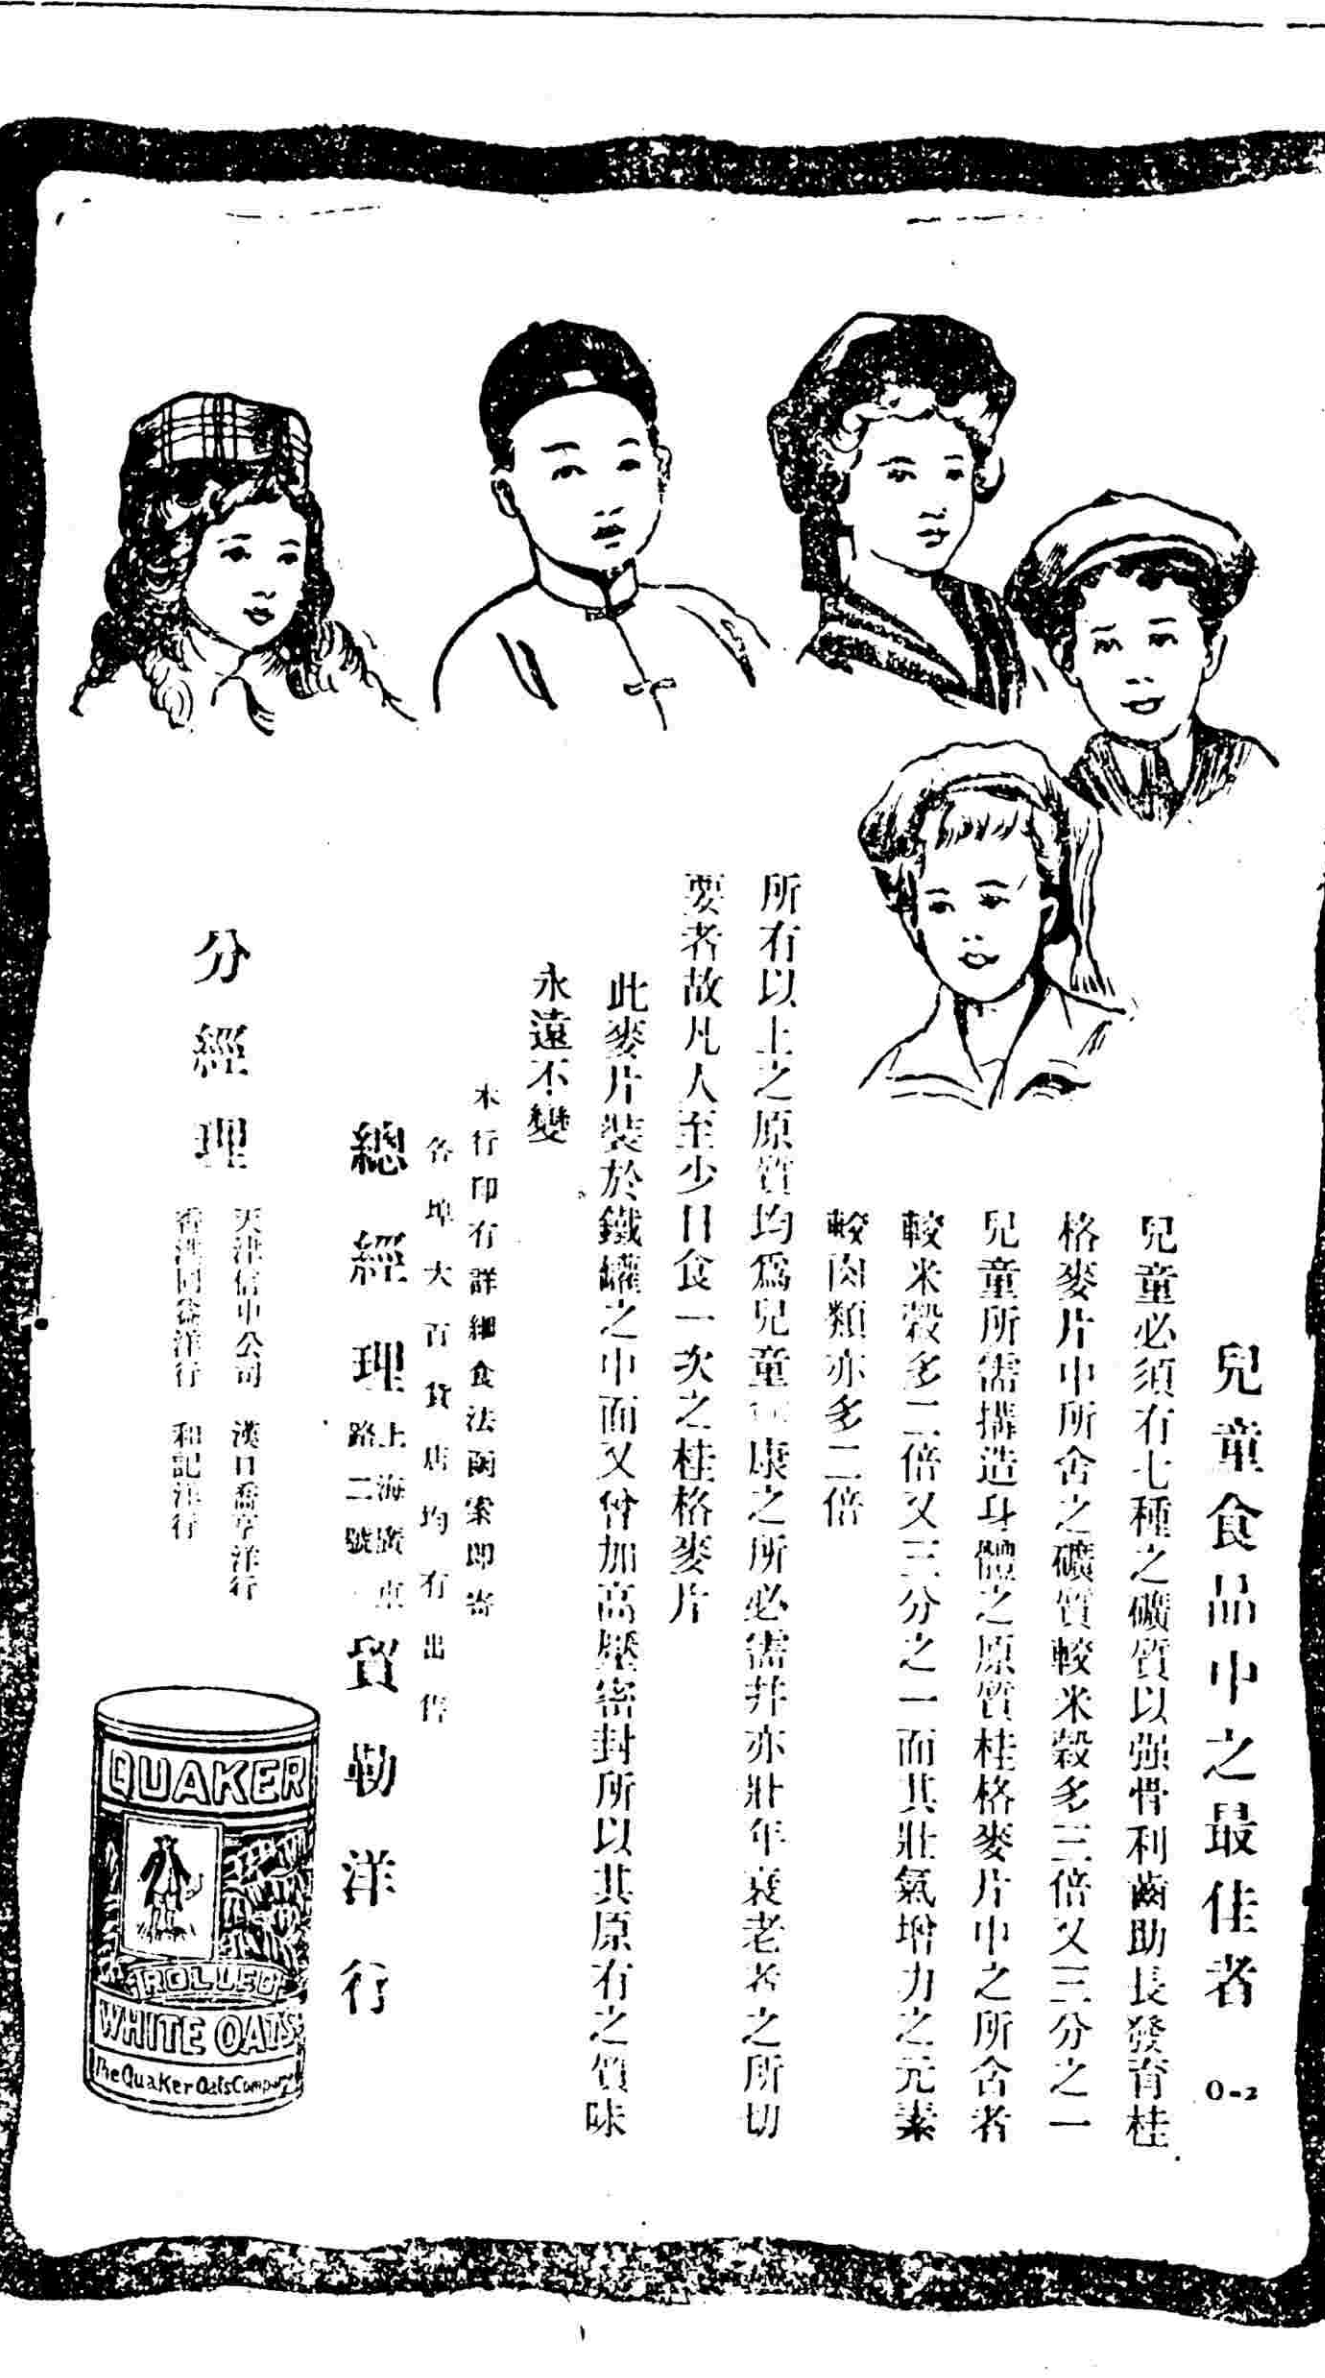 兒童食品中之最佳者 O-2
兒童必須有七種之礦質以强骨利齒助長發育桂
格麥片中所含之礦質較米穀多三倍又三分之一
兒童所需搆造身體之原質桂格麥片中之所含者
較米穀多二倍又三分之一而其壯氣增力之元素
較肉類亦多二倍
所有以上之原質均爲兒童康之所必需幷亦壯年衰老者之所切
要者故凡人至少日食一次之桂格麥片
此麥片裝於鐵罐之中而又曾加高壓密封所以其原有之質味
永遠不變
本行印有詳細食法函索即寄
各埠大百貨店均有出售
總經理 上海廣東路二號 貿勒洋行
分經理
天津信中公司 漢口喬亨洋行
香港同益洋行 和記洋行
QUAKER
ROLLED
WHITE OATS
The Quaker Oats Company